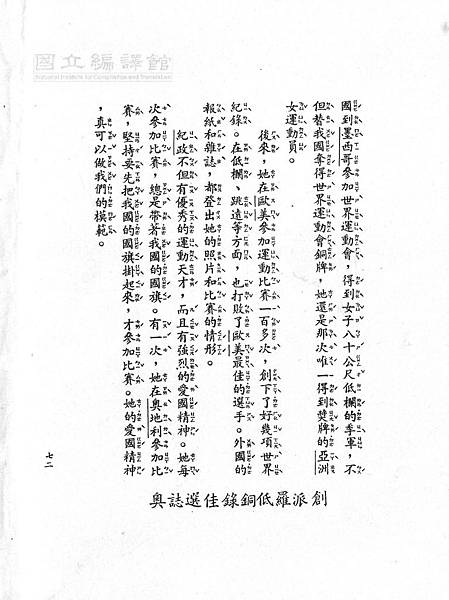 國立編譯館
National Institute for Compilation and Translation
國到墨西哥參加世界運動會，得到女子八十公尺低欄的季軍，不
但替我國奪得世界運動會銅牌，她還是那次唯一得到獎牌的亞洲
女運動員。
後來，她在歐美參加運動比賽一百多次，創下了好幾項世界
紀錄。在低欄、跳遠等方面，也打敗了歐美最佳的選手。外國的
報紙和雜誌，都登出她的照片和比賽的情形。
紀政不但有優秀的運動天才，而且有強烈的愛國精神。她每
次參加比賽，總是帶著我國的國旗。有一次，她在奧地利參加比
賽，堅持要先把我國的國旗掛起來，才參加比賽。她的愛國精神
，真可以做我們的模範。
創派羅低銅錄佳選誌奧
七二